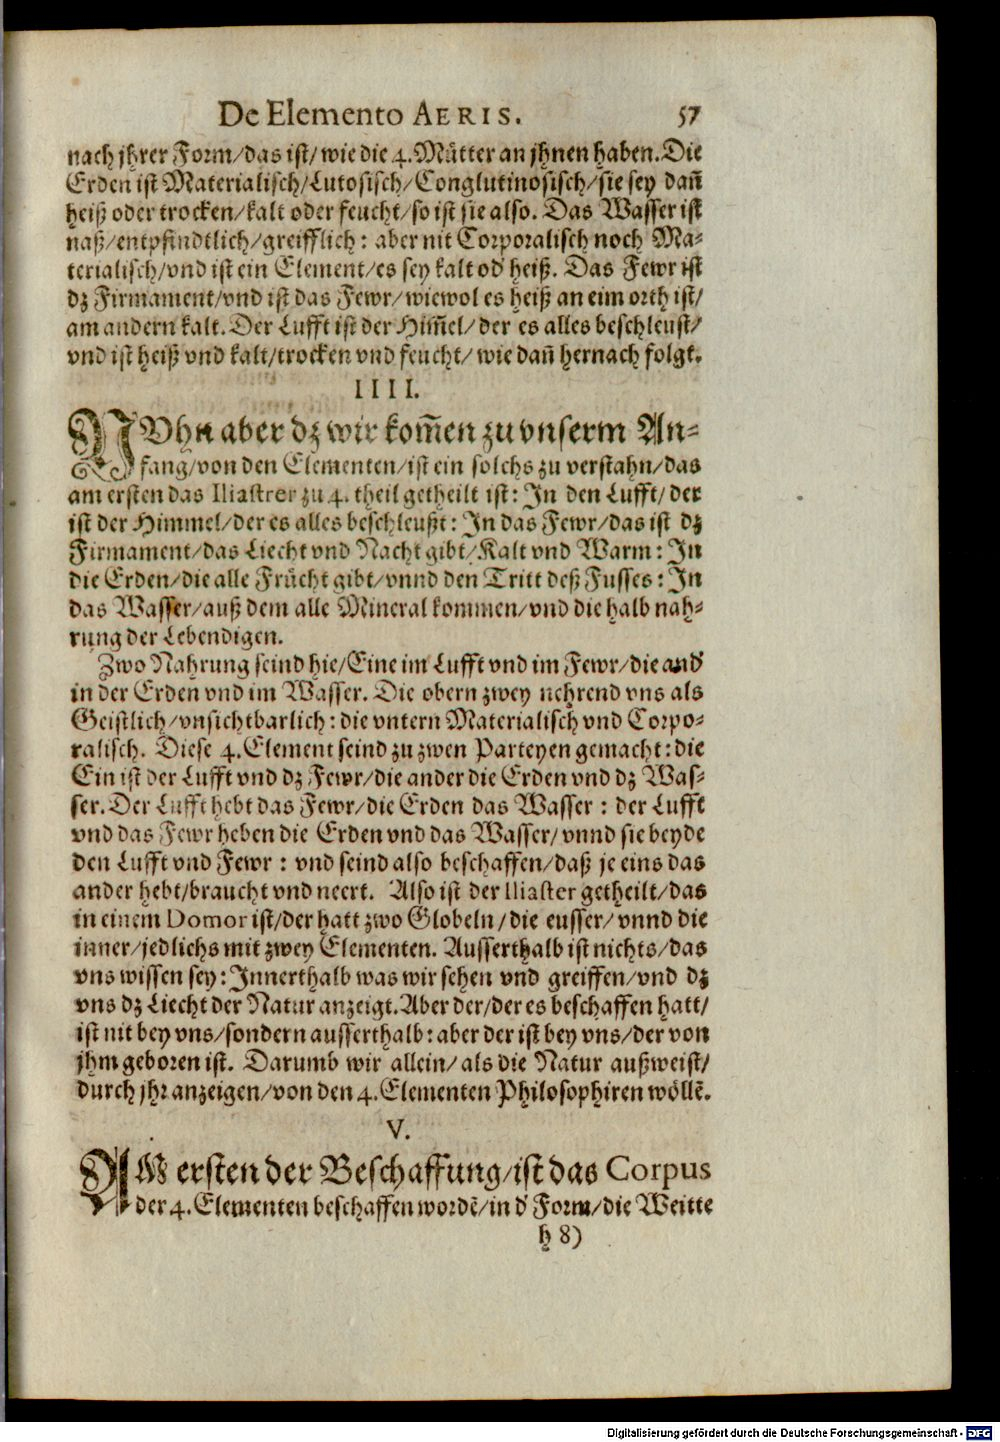 De Elemento AERIS. 57
nach jhrer Form/das ist/wie die 4. Mütter an jhnen haben. Die
Erden ist Materialisch/Lutosisch/Conglutinosisch/sie sey dañ
heiß oder trocken/kalt oder feucht/so ist sie also. Das Wasser ist
naß/entpfindtlich/greifflich: aber nit Corporalisch noch Ma-
terialisch/vnd ist ein Element/es sey kalt od' heiß. Das Fewr ist
dz Firmament/vnd ist das Fewr/wiewol es heiß an eim orth ist/
am andern kalt. Der Lufft ist der Him̃el/der es alles beschleust/
vnd ist heiß vnd kalt/trocken vnd feucht/wie dañ hernach folgt.
IIII.
NVhn aber dz wir kom̃en zu vnserm An-
fang/von den Elementen/ist ein solchs zu verstahn/das
am ersten das Iliastrer zu 4. theil getheilt ist: In den Lufft/der
ist der Himmel/der es alles beschleußt: In das Fewr/das ist dz
Firmament/das Liecht vnd Nacht gibt/Kalt vnd Warm: In
die Erden/die alle Frücht gibt/vnnd den Tritt deß Fusses: In
das Wasser/auß dem alle Mineral kommen/vnd die halb nah-
rung der Lebendigen.
Zwo Nahrung seind hie/Eine im Lufft vnd im Fewr/die and'
in der Erden vnd im Wasser. Die obern zwey nehrend vns als
Geistlich/vnsichtbarlich: die vntern Materialisch vnd Corpo-
ralisch. Diese 4. Element seind zu zwen Parteyen gemacht: die
Ein ist der Lufft vnd dz Fewr/die ander die Erden vnd dz Was-
ser. Der Lufft hebt das Fewr/die Erden das Wasser: der Lufft
vnd das Fewr heben die Erden vnd das Wasser/vnnd sie beyde
den Lufft vnd Fewr: vnd seind also beschaffen/daß je eins das
ander hebt/braucht vnd neert. Also ist der Iliaster getheilt/das
in einem Domor ist/der hatt zwo Globeln/die eusser/vnnd die
inner/jedlichs mit zwey Elementen. Ausserthalb ist nichts/das
vns wissen sey: Innerthalb was wir sehen vnd greiffen/vnd dz
vns dz Liecht der Natur anzeigt. Aber der/der es beschaffen hatt/
ist nit bey vns/sondern ausserthalb: aber der ist bey vns/der von
jhm geboren ist. Darumb wir allein/als die Natur außweist/
durch jhr anzeigen/von den 4. Elementen Philosophiren wöllẽ.
V.
AM ersten der Beschaffung/ist das Corpus
der 4. Elementen beschaffen wordẽ/in d' Form/die Weitte
h 8)
Digitalisierung gefördert durch die Deutsche Forschungsgemeinschaft - DFG